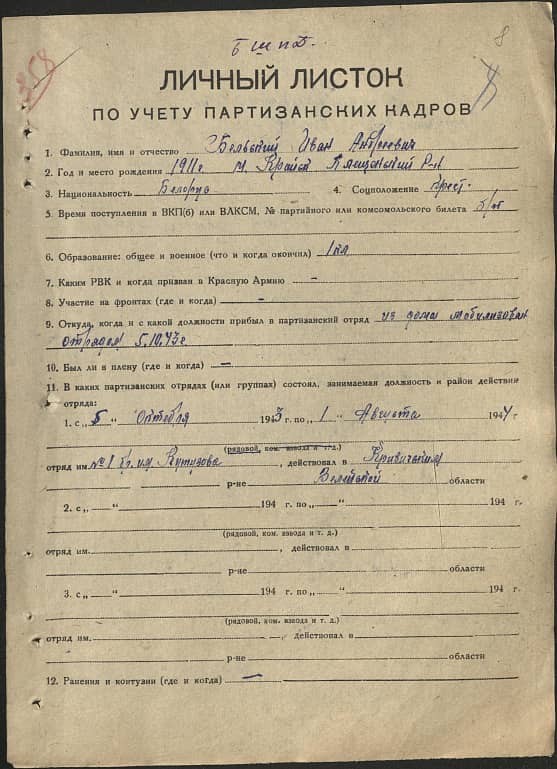 БШПД.
8
ЛИЧНЫЙ ЛИСТОК
ПО УЧЕТУ ПАРТИЗАНСКИХ КАДРОВ
1. Фамилия, имя и отчество Бельский Иван Андреевич
2. Год и место рождения 1911г. м. Крайск Плещенский р-н
3. Национальность Белорус 4. Соцположение крест.
5. Время поступления в ВКП(б) или ВЛКСМ, № партийного или комсомольского билета б/п
6. Образование: общее и военное (что и когда окончил) 1 кл
7. Каким РВК и когда призван в Красную Армию –
8. Участие на фронтах (где и когда) –
9. Откуда, когда и с какой должности прибыл в партизанский отряд из дома мобилизован
отрядом 5.10.43г
10. Был ли в плену (где и когда) –
11. В каких партизанских отрядах (или группах) состоял, занимаемая должность и район действий
отряда:
1. с „ 5 “ Октября 1943 г. по „ 1 “ Августа 1944 г.
(рядовой, ком. взвода и т. д.)
отряд им. №1 бр. им Кутузова, действовал в Кривичским
р-не Вилейской области
2. с „ “ 194 г. по „ “ 194 г.
(рядовой, ком. взвода и т. д.)
отряд им. , действовал в
р-не области
3. с „ “ 194 г. по „ “ 194 г.
(рядовой, ком. взвода и т. д.)
отряд им. , действовал в
р-не области
12. Ранения и контузии (где и когда) –